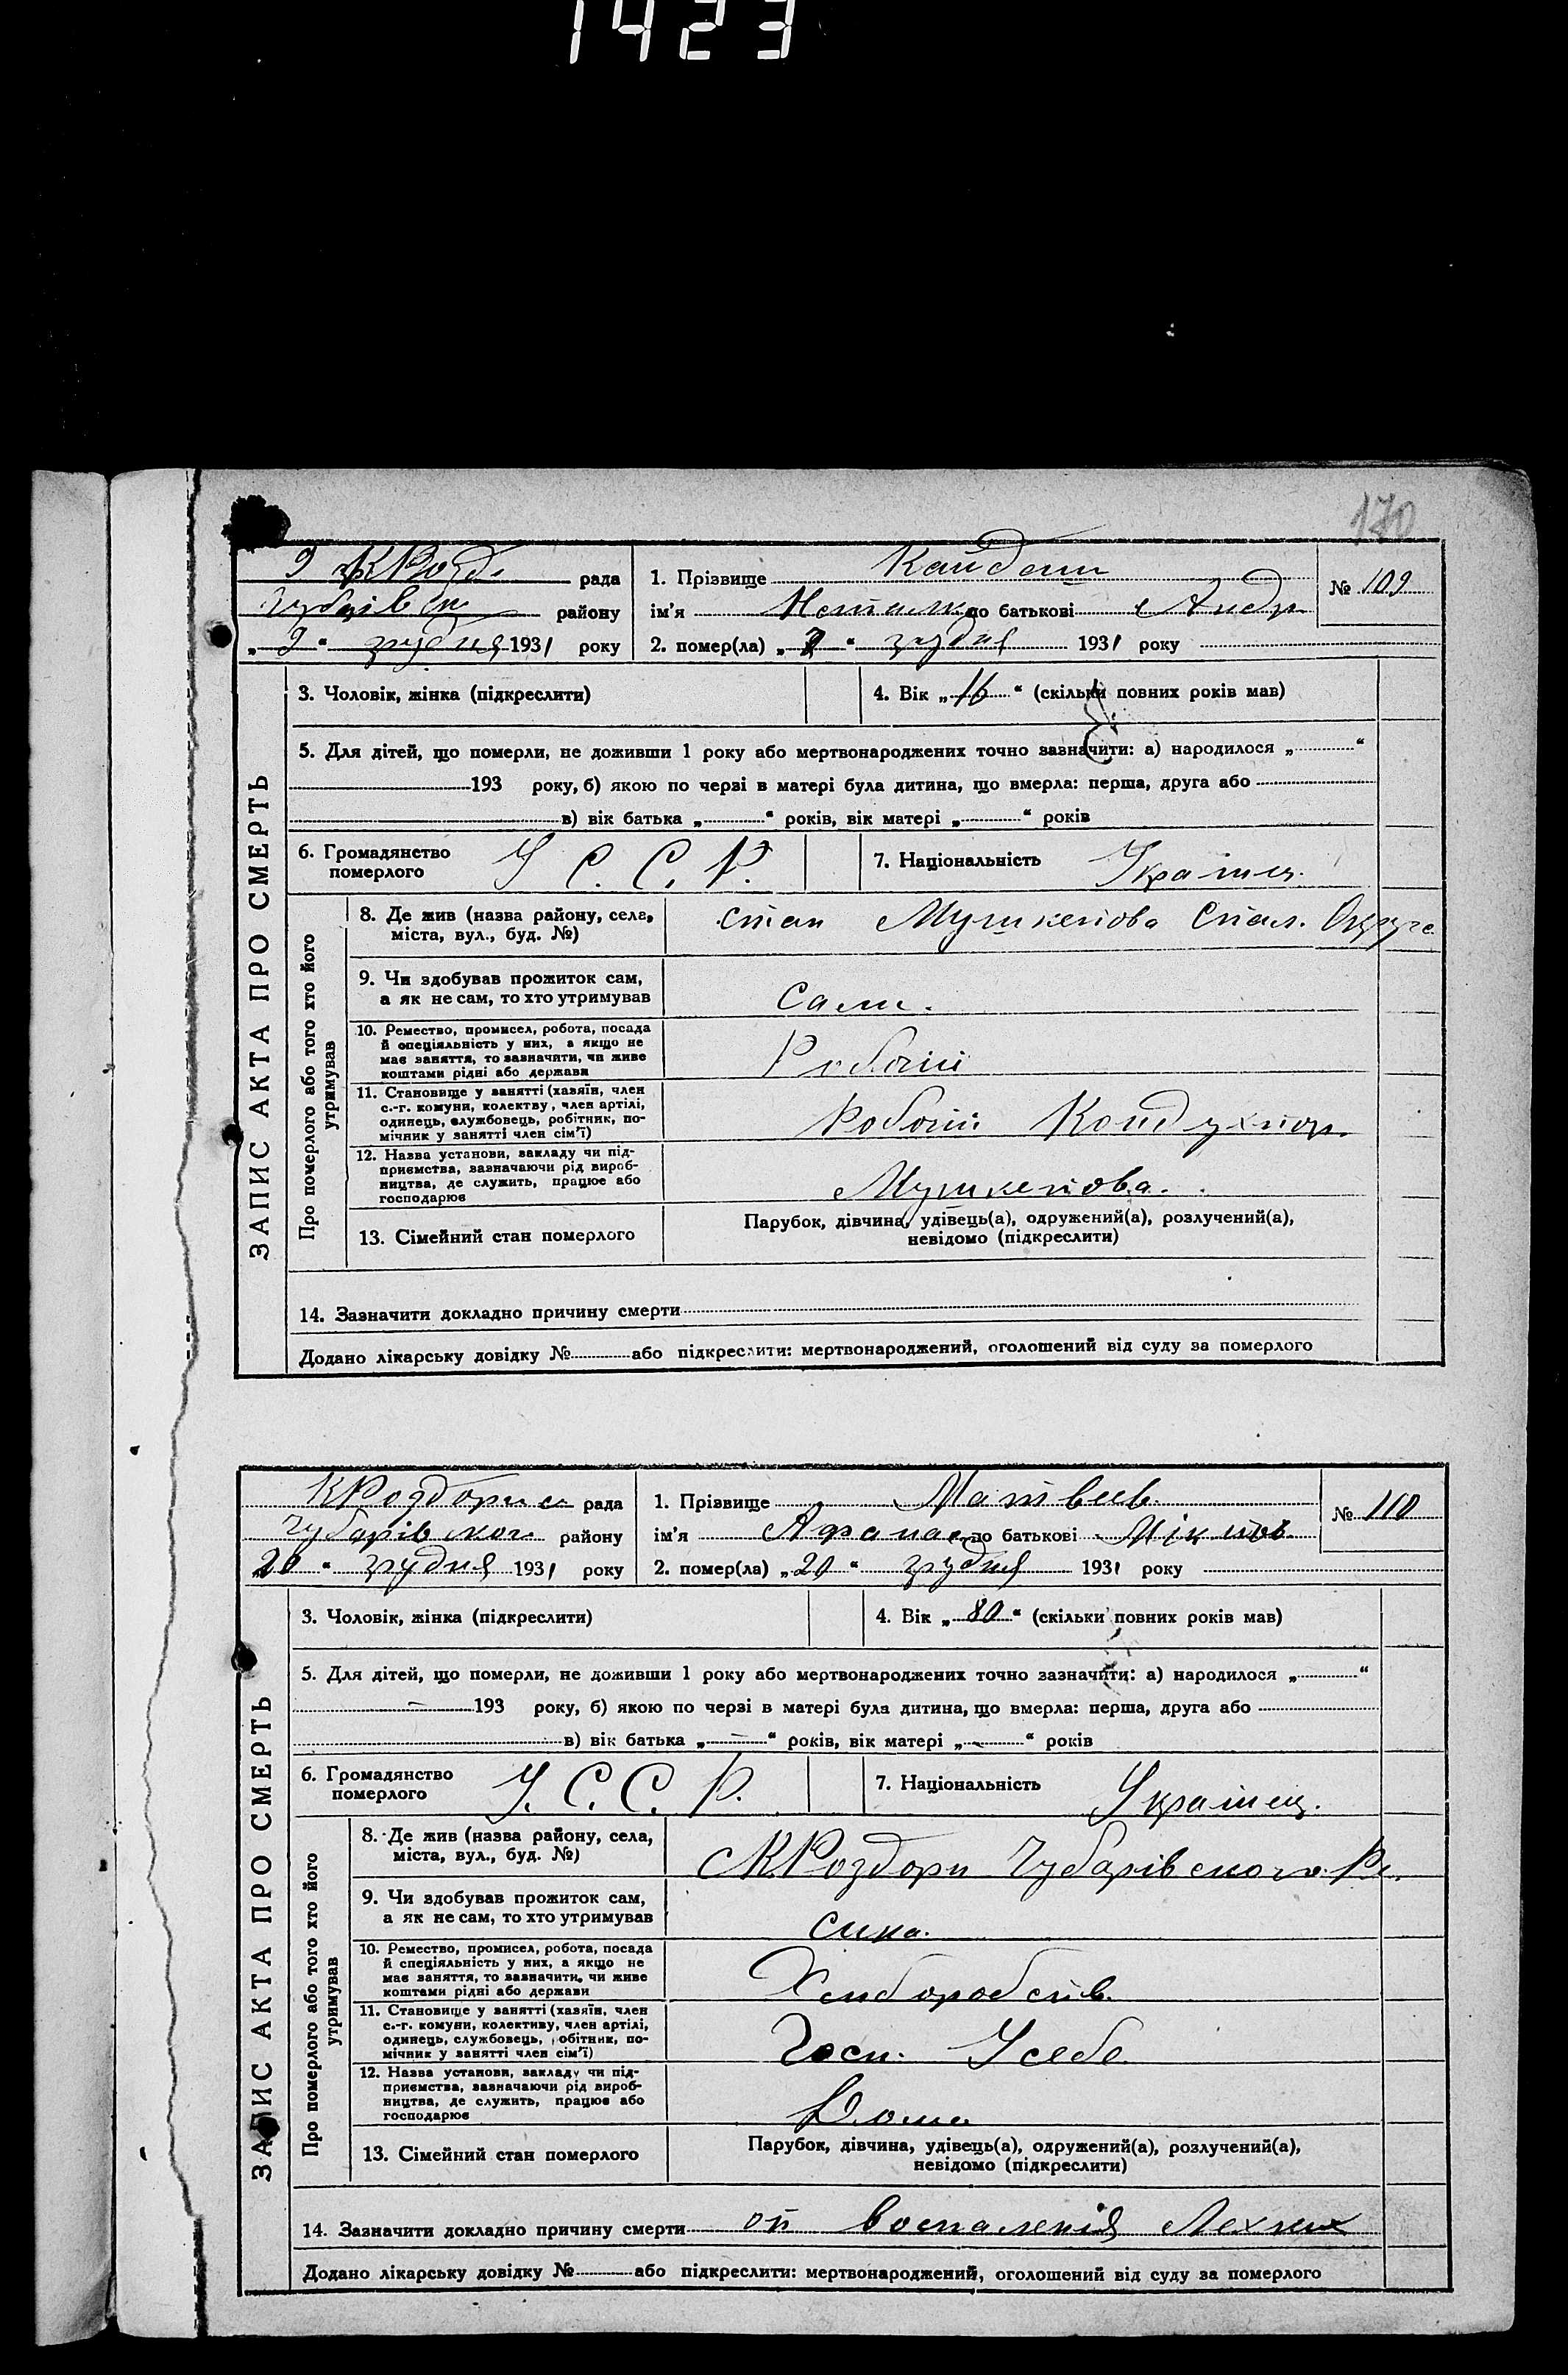 1423
170
К Розд. рада
1. Прізвище Кайдаш
№ 109
Чубарівськ району
ім'я по батькові Андр
„ 9 “ грудня 1931 року
2. помер(ла) „ “ грудня 1931 року
ЗАПИС АКТА ПРО СМЕРТЬ
3. Чоловік, жінка (підкреслити)
4. Вік „ 16 “ (скільки повних років мав)
5. Для дітей, що померли, не доживши 1 року або мертвонароджених точно зазначити: а) народилося „ “
193 року, б) якою по черзі в матері була дитина, що вмерла: перша, друга або
в) вік батька „ “ років, вік матері „ “ років
6. Громадянство померлого У С. С. Р.
7. Національність Українец.
Про померлого або того хто його утримував
8. Де жив (назва району, села, міста, вул., буд. №)
стан Мушкетова Стал. Округа
9. Чи здобував прожиток сам, а як не сам, то хто утримував
Сам.
10. Ремество, промисел, робота, посада й спеціяльність у них, а якщо не має заняття, то зазначити, чи живе коштами рідні або держави
Робочий
11. Становище у занятті (хазяїн, член с.-г. комуни, колектву, член артілі, одинець, службовець, робітник, помічник у занятті член сім'ї)
Робочий Кондуктор.
12. Назва установи, закладу чи підприємства, зазначаючи рід виробництва, де служить, працює або господарює
Мушкетова.
13. Сімейний стан померлого
Парубок, дівчина, удівець(а), одружений(а), розлучений(а),
невідомо (підкреслити)
14. Зазначити докладно причину смерти
Додано лікарську довідку № або підкреслити: мертвонароджений, оголошений від суду за померлого
КРоздорис рада
1. Прізвище Матвеев
№ 110
Чубарівског району
ім'я Афанас по батькові
„20 “ грудня 1931 року
2. помер(ла) „ 20 “ грудня 1931 року
ЗАПИС АКТА ПРО СМЕРТЬ
3. Чоловік, жінка (підкреслити)
4. Вік „ 80 “ (скільки повних років мав)
5. Для дітей, що померли, не доживши 1 року або мертвонароджених точно зазначити: а) народилося „ “
193 року, б) якою по черзі в матері була дитина, що вмерла: перша, друга або
в) вік батька „ — “ років, вік матері „ — “ років
6. Громадянство померлого У. С. С. Р.
7. Національність Українец.
Про померлого або того хто його утримував
8. Де жив (назва району, села, міста, вул., буд. №)
с КРоздори Чубарівского Ра.
9. Чи здобував прожиток сам, а як не сам, то хто утримував
сина.
10. Ремество, промисел, робота, посада й спеціяльність у них, а якщо не має заняття, то зазначити, чи живе коштами рідні або держави
11. Становище у занятті (хазяїн, член с.-г. комуни, колективу, член артілі, одинець, службовець, робітник, помічник у занятті член сім'ї)
Госп. У себе
12. Назва установи, закладу чи підприємства, зазначаючи рід виробництва, де служить, працює або господарює
Дома
13. Сімейний стан померлого
Парубок, дівчина, удівець(а), одружений(а), розлучений(а),
невідомо (підкреслити)
14. Зазначити докладно причину смерти от воспаленія Лехких
Додано лікарську довідку № або підкреслити: мертвонароджений, оголошений від суду за померлого